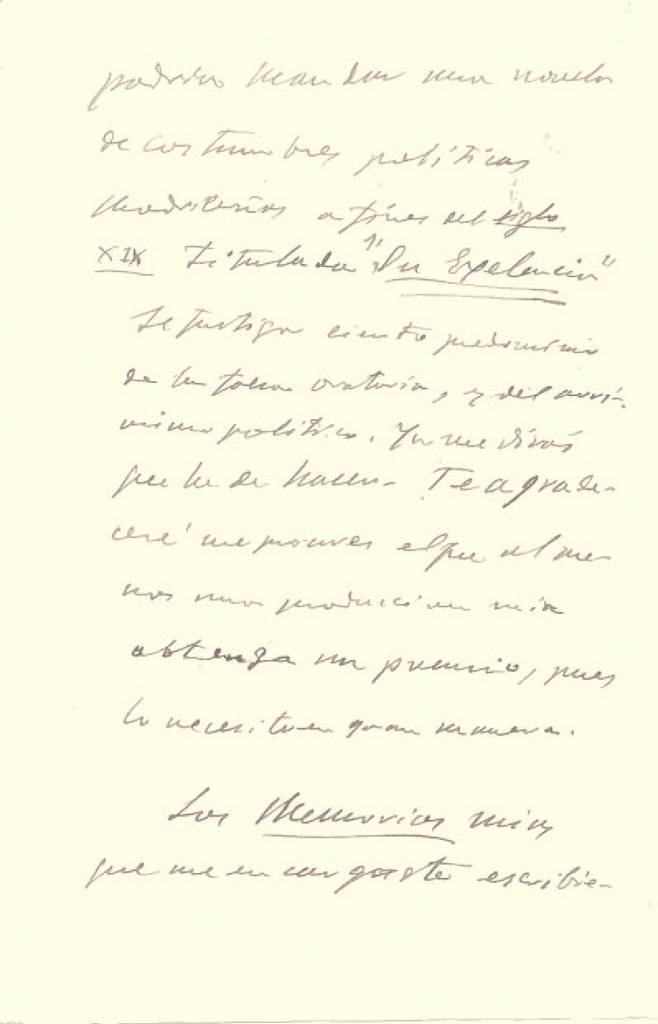 podria mandar una novela
de costumbres políticas
madrileñas a fines del siglo
XIX titulada "Su Exelencia"
Se fustiga cierto predominio
de la oratoria, y del
político. Tu me dirás
que he de hacer. Te agrade-
ceré me procures el que al me-
nos una produccion mia
obtenga un premio, pues
lo necesito en gran manera.
Las Memorias mias
que me encargaste escribie-